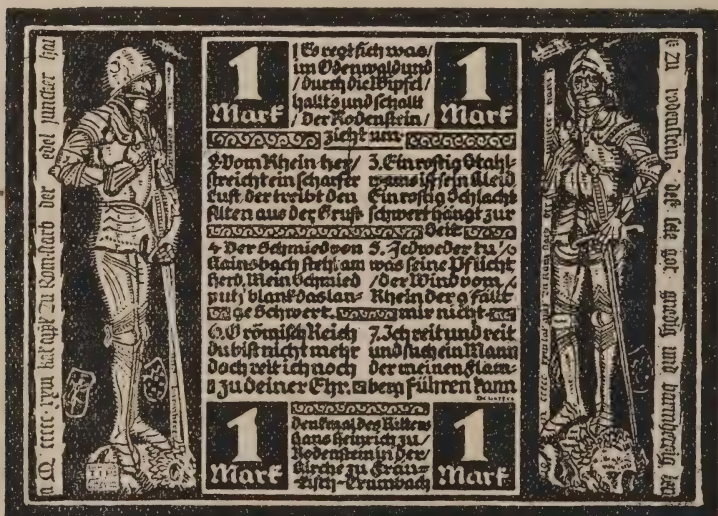 1
Mark
1
Mark
1 Es regt sich was/
im Odenwald und
/durch die Wipfel/
hallts und schallt
/der Rodenstein/
zieht um
2. Vom Rhein her/
streicht ein scharfer
Luft, der treibt den
Alten aus der Gruft
3. Ein rostig Stahl-
wams ist sein Kleid
Ein rostig Schlacht
schwert hängt zur
Seit
4 Der Schmied von
Kainsbach steht am
herd, Mein Schmied
putz blank das lan-
ge Schwert.
5. Jedweder tu/
was seine Pflicht
/der Wind vom/
Rhein der gfällt
mir nicht
6. O römisch Reich
du bist nicht mehr
doch reit ich noch
zu deiner Ehr.
7. Ich reit und reit
und such ein Mann
der meinen Flam-
berg führen kann
1
Mark
1
Mark
Denkmal des Ritters
Hans Heinrich zu/
Rodenstein in der
Kirche zu Frän-
kisch-Crumbach
zu Rom starb der edel juncker hai
zu rodenstein · det sele got gnedig und barmherzig